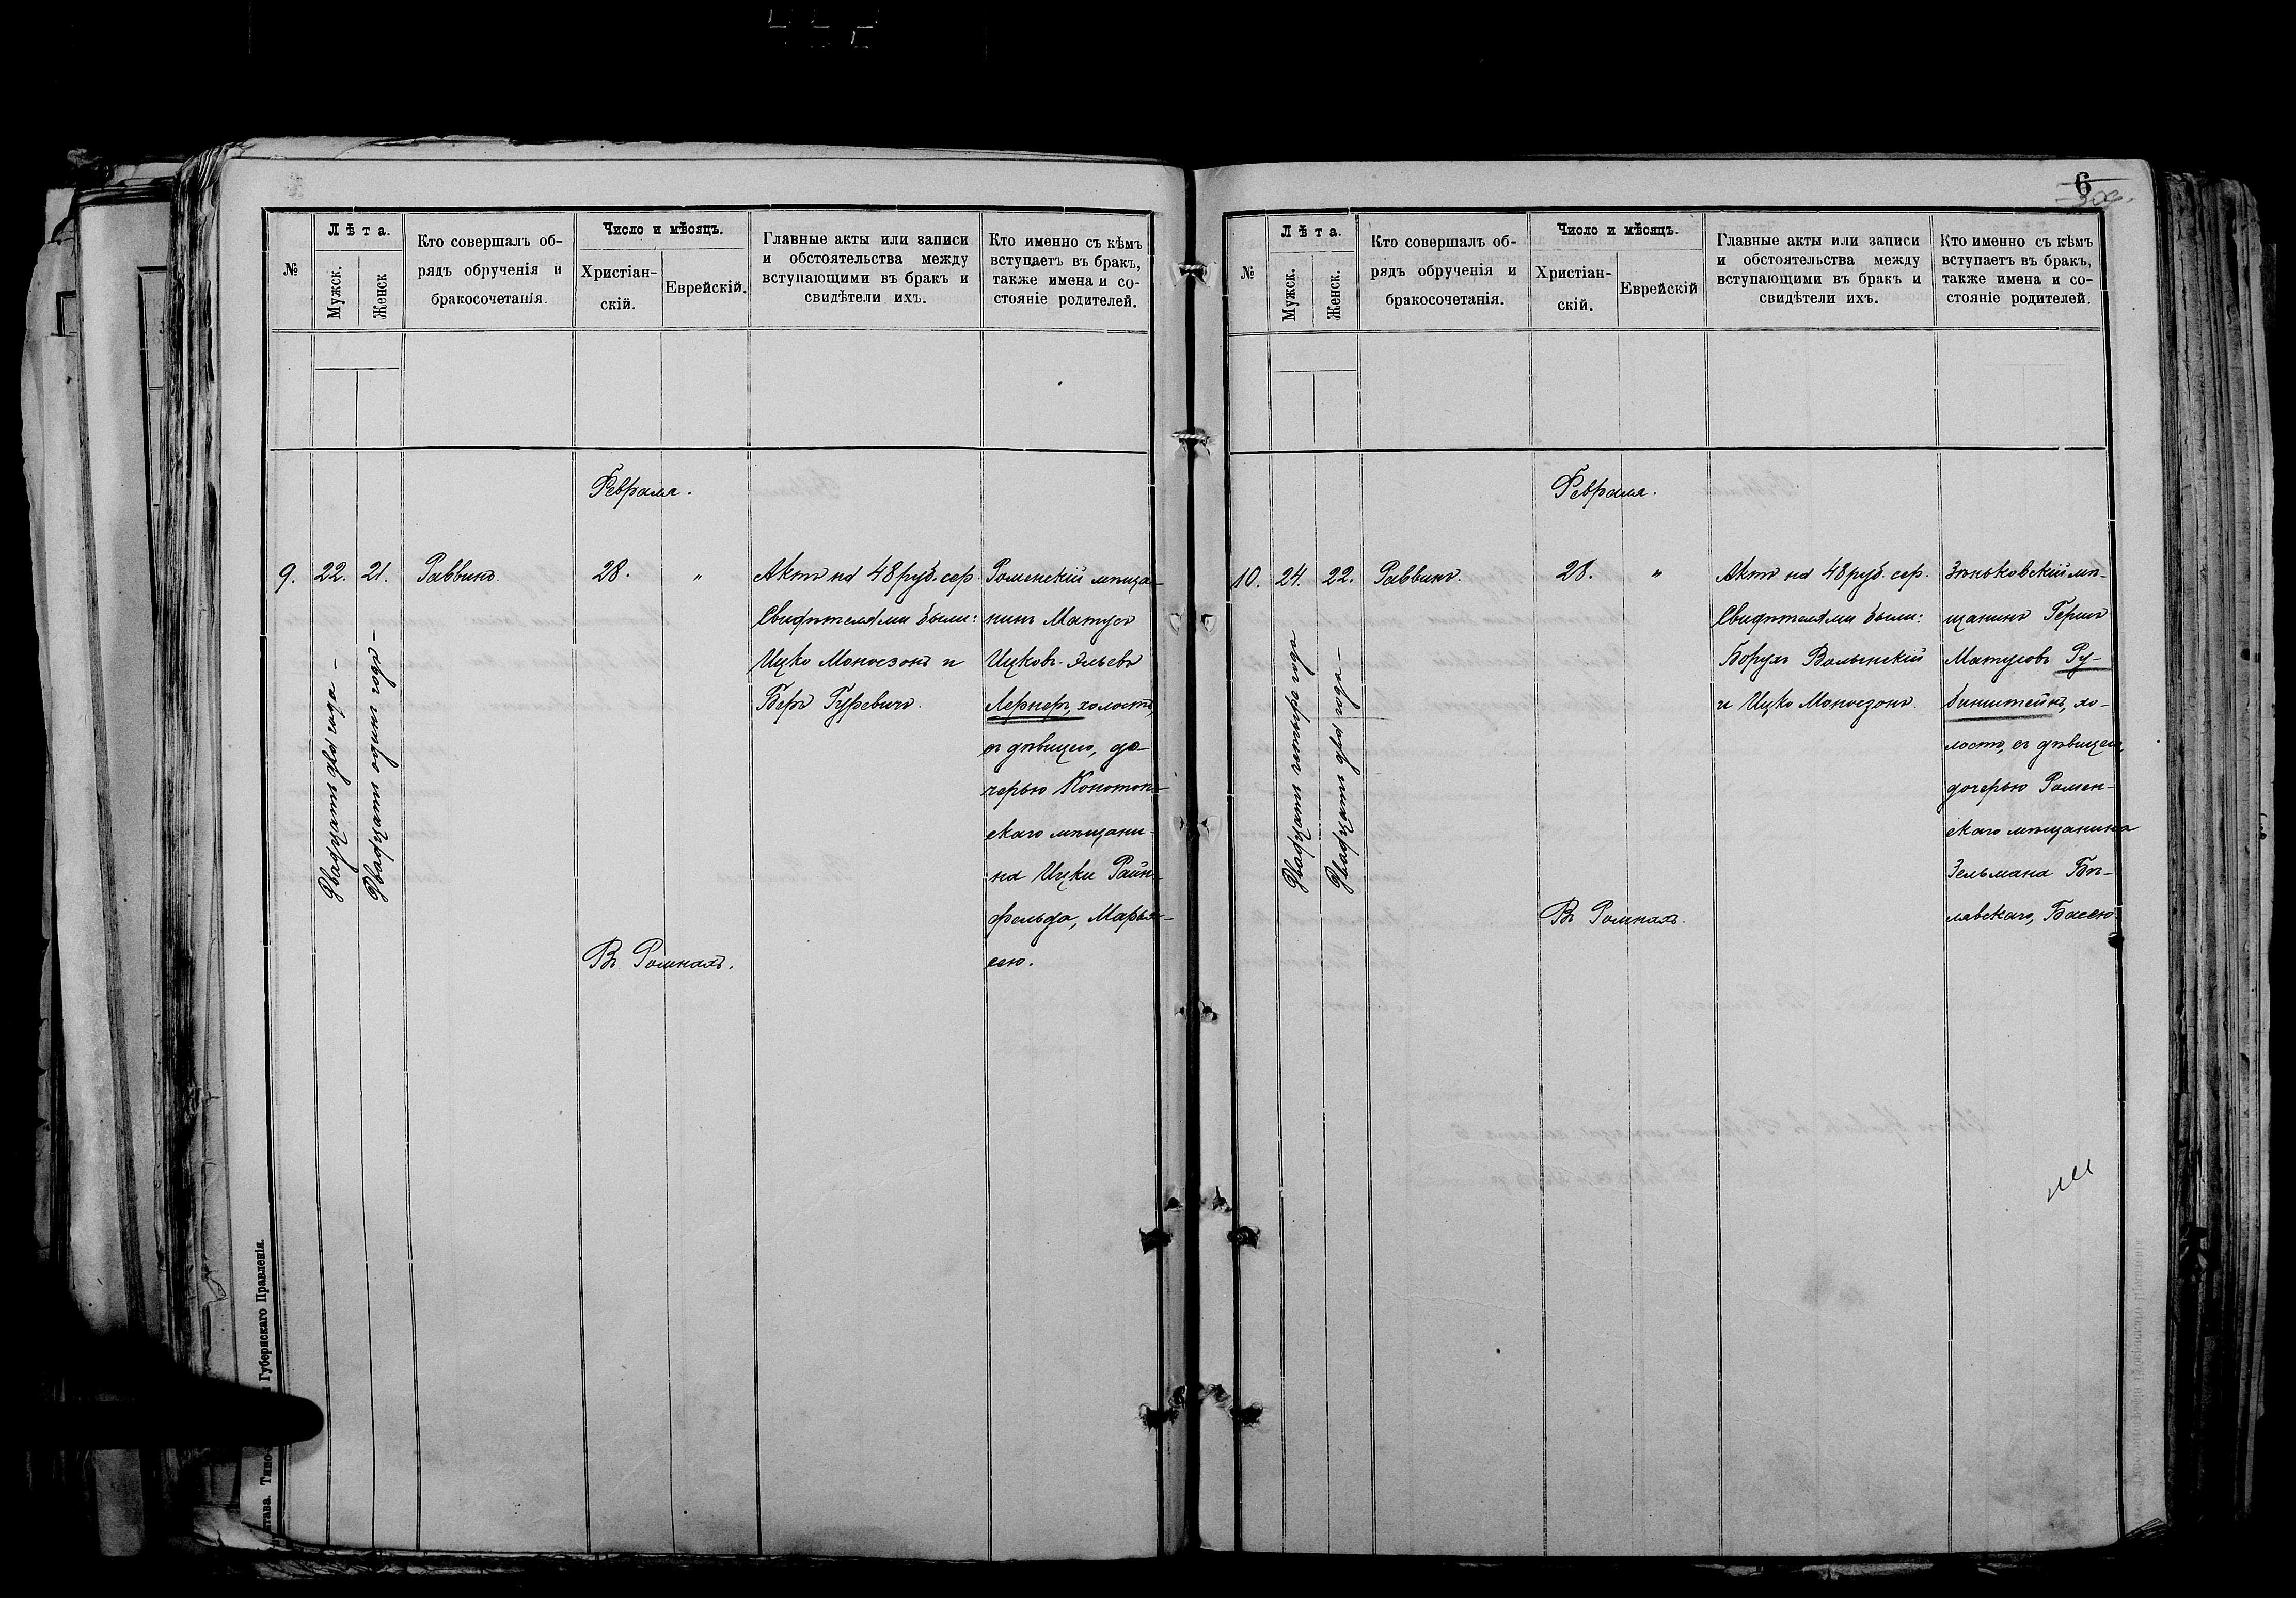 №
Лѣта.
Мужск.
Женск
Кто совершалъ об-
рядъ обрученія и
бракосочетанія.
Число и мѣсяцъ.
Христіан-
скій.
Еврейскій.
Главные акты или записи
и обстоятельства между
вступающими въ бракъ и
свидѣтели ихъ.
Кто именно съ кѣмъ
вступаетъ въ бракъ,
также имена и со-
стояніе родителей.
Февраля.
9.
22.
Двадцать два года —
21.
Двадцать одинъ годъ —
Раввинъ.
28.
"
Въ Ромнахъ.
Актъ на 48 руб. сер.
Свидѣтелями были:
Ицко Моносзонъ и
Беръ Гуревичъ.
Роменскій мѣща-
нинъ Матусъ
Ицковъ-Эльевъ
Лернеръ, холостъ,
съ дѣвицею, до-
черью Конотоп-
скаго мѣщани-
на Ицки Райн-
фельда, Марья-
сею.
Губернскаго Правленія.
6
№
Лѣта.
Мужск.
Женск.
Кто совершалъ об-
рядъ обрученія и
бракосочетанія.
Число и мѣсяцъ.
Христіан-
скій.
Еврейскій
Главные акты или записи
и обстоятельства между
вступающими въ бракъ и
свидѣтели ихъ.
Кто именно съ кѣмъ
вступаетъ въ бракъ,
также имена и со-
стояніе родителей.
Февраля.
10.
24.
Двадцать четыре года
22.
Двадцать два года —
Раввинъ.
28.
"
Въ Ромнахъ.
Актъ на 48 руб. сер.
Свидѣтелями были:
Борухъ Волынскій
и Ицко Моносзонъ.
Зѣньковскій мѣ-
щанинъ Гершъ
Матусовъ Ру-
бинштейнъ, хо-
лостъ, съ дѣвицею,
дочерью Ромен-
скаго мѣщанина
Зельмана Бѣ-
лявскаго, Басею.